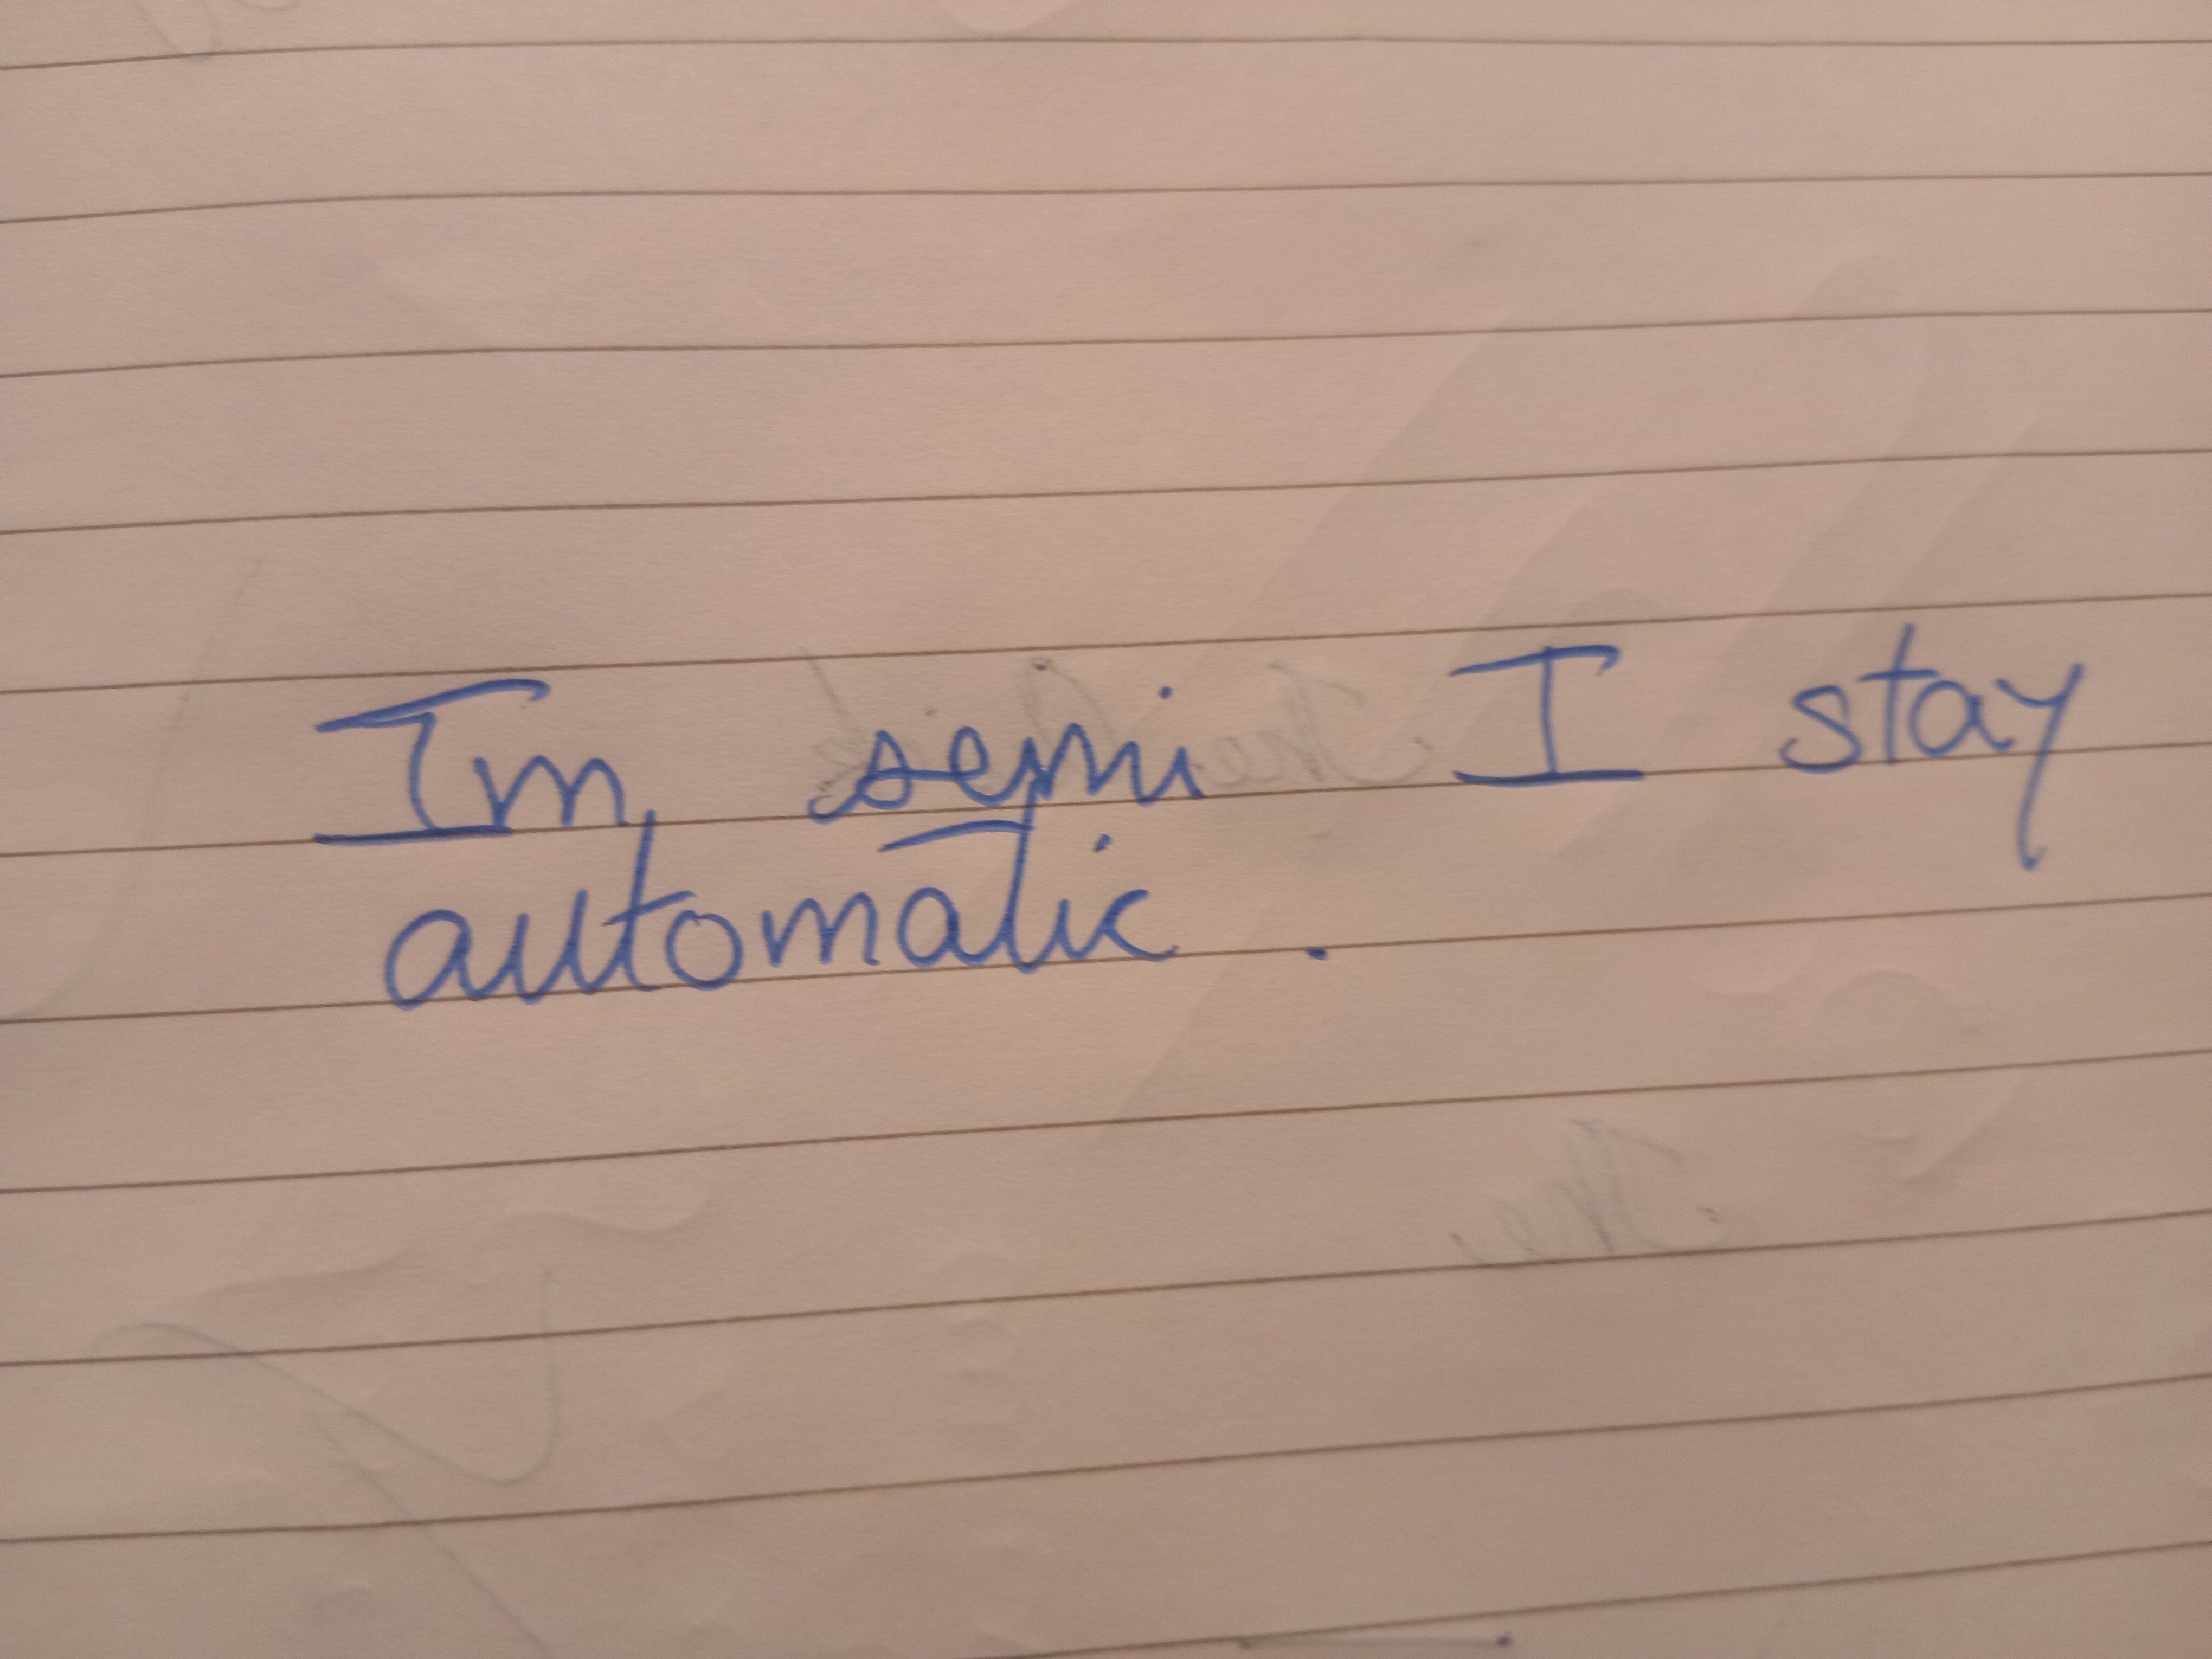 Im semi I stay
automatic.